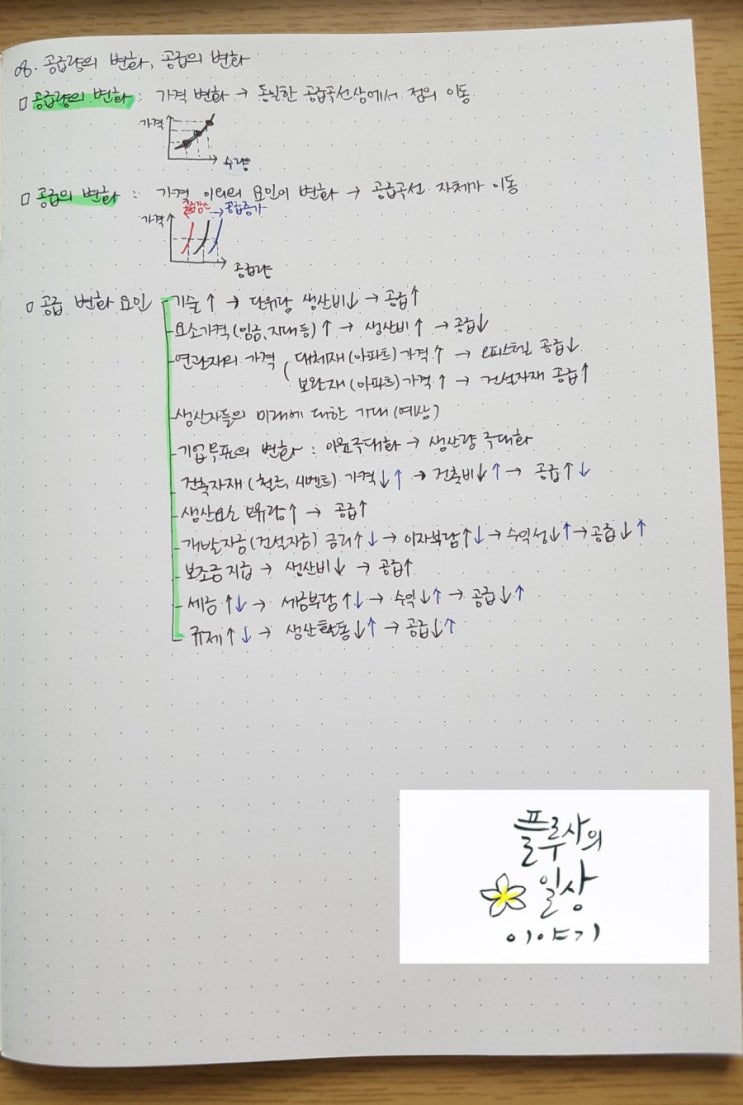 08. 공급량의 변화, 공급의 변화
□ 공급량의 변화 : 가격 변화 → 동일한 공급곡선상에서 점의 이동
가격
수량
□ 공급의 변화 : 가격 이외의 요인이 변화 → 공급곡선 자체가 이동
공급감소 → 공급증가
가격
공급량
□ 공급 변화 요인
기술↑ → 단위당 생산비↓ → 공급↑
요소가격(임금, 지대 등)↑ → 생산비↑ → 공급↓
연관재의 가격 ( 대체재(아파트)가격↑ → 오피스텔 공급↓
보완재(아파트)가격↑ → 건설자재 공급↑
생산자들의 미래에 대한 기대(예상)
기업목표의 변화 : 이윤극대화 → 생산량 극대화
건축자재(철근, 시멘트) 가격↓↑ → 건축비↓↑ → 공급↑↓
생산요소 보유량↑ → 공급↑
개발자금(건설자금) 금리↑↓ → 이자부담↑↓ → 수익성↓↑ → 공급↓↑
보조금 지급 → 생산비↓ → 공급↑
세금↑↓ → 세금부담↑↓ → 수익↓↑ → 공급↓↑
규제↑↓ → 생산활동↓↑ → 공급↓↑
플루사의
일상
이야기